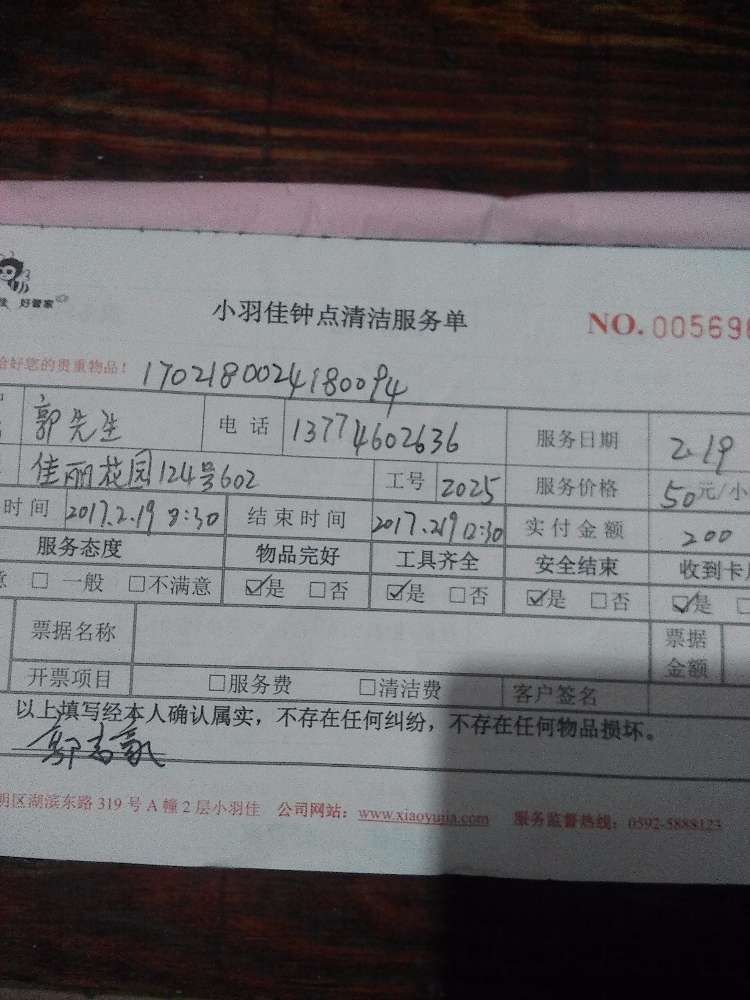 好管家
小羽佳钟点清洁服务单 NO. 00569
好您的贵重物品！ 1702180024180094
郭先生 电话 13774602636 服务日期 2.19
佳丽花园124号602 工号 2025 服务价格 50元/小
时间 2017.2.19 8:30 结束时间 2017.2.19 12:30 实付金额 200
服务态度 物品完好 工具齐全 安全结束 收到卡
□ 一般 □不满意 ☑是 □否 ☑是 □否 ☑是 □否 ☑是 □
票据名称 票据金额
开票项目 □服务费 □清洁费 客户签名
以上填写经本人确认属实，不存在任何纠纷，不存在任何物品损坏。
明区湖滨东路 319 号 A 幢 2 层小羽佳 公司网站：www.xiaoyujia.com 服务监督热线：0592-5888123